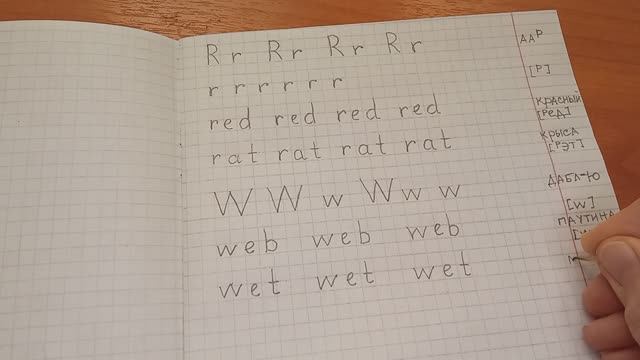 R r R r R r R r
r r r r r r
red red red red
rat rat rat rat
W W w W w w
web web web
wet wet wet
ААР
[Р]
КРАСНЫЙ
[РЕД]
КРЫСА
[РЭТ]
ДАБЛ-Ю
[W]
ПАУТИНА